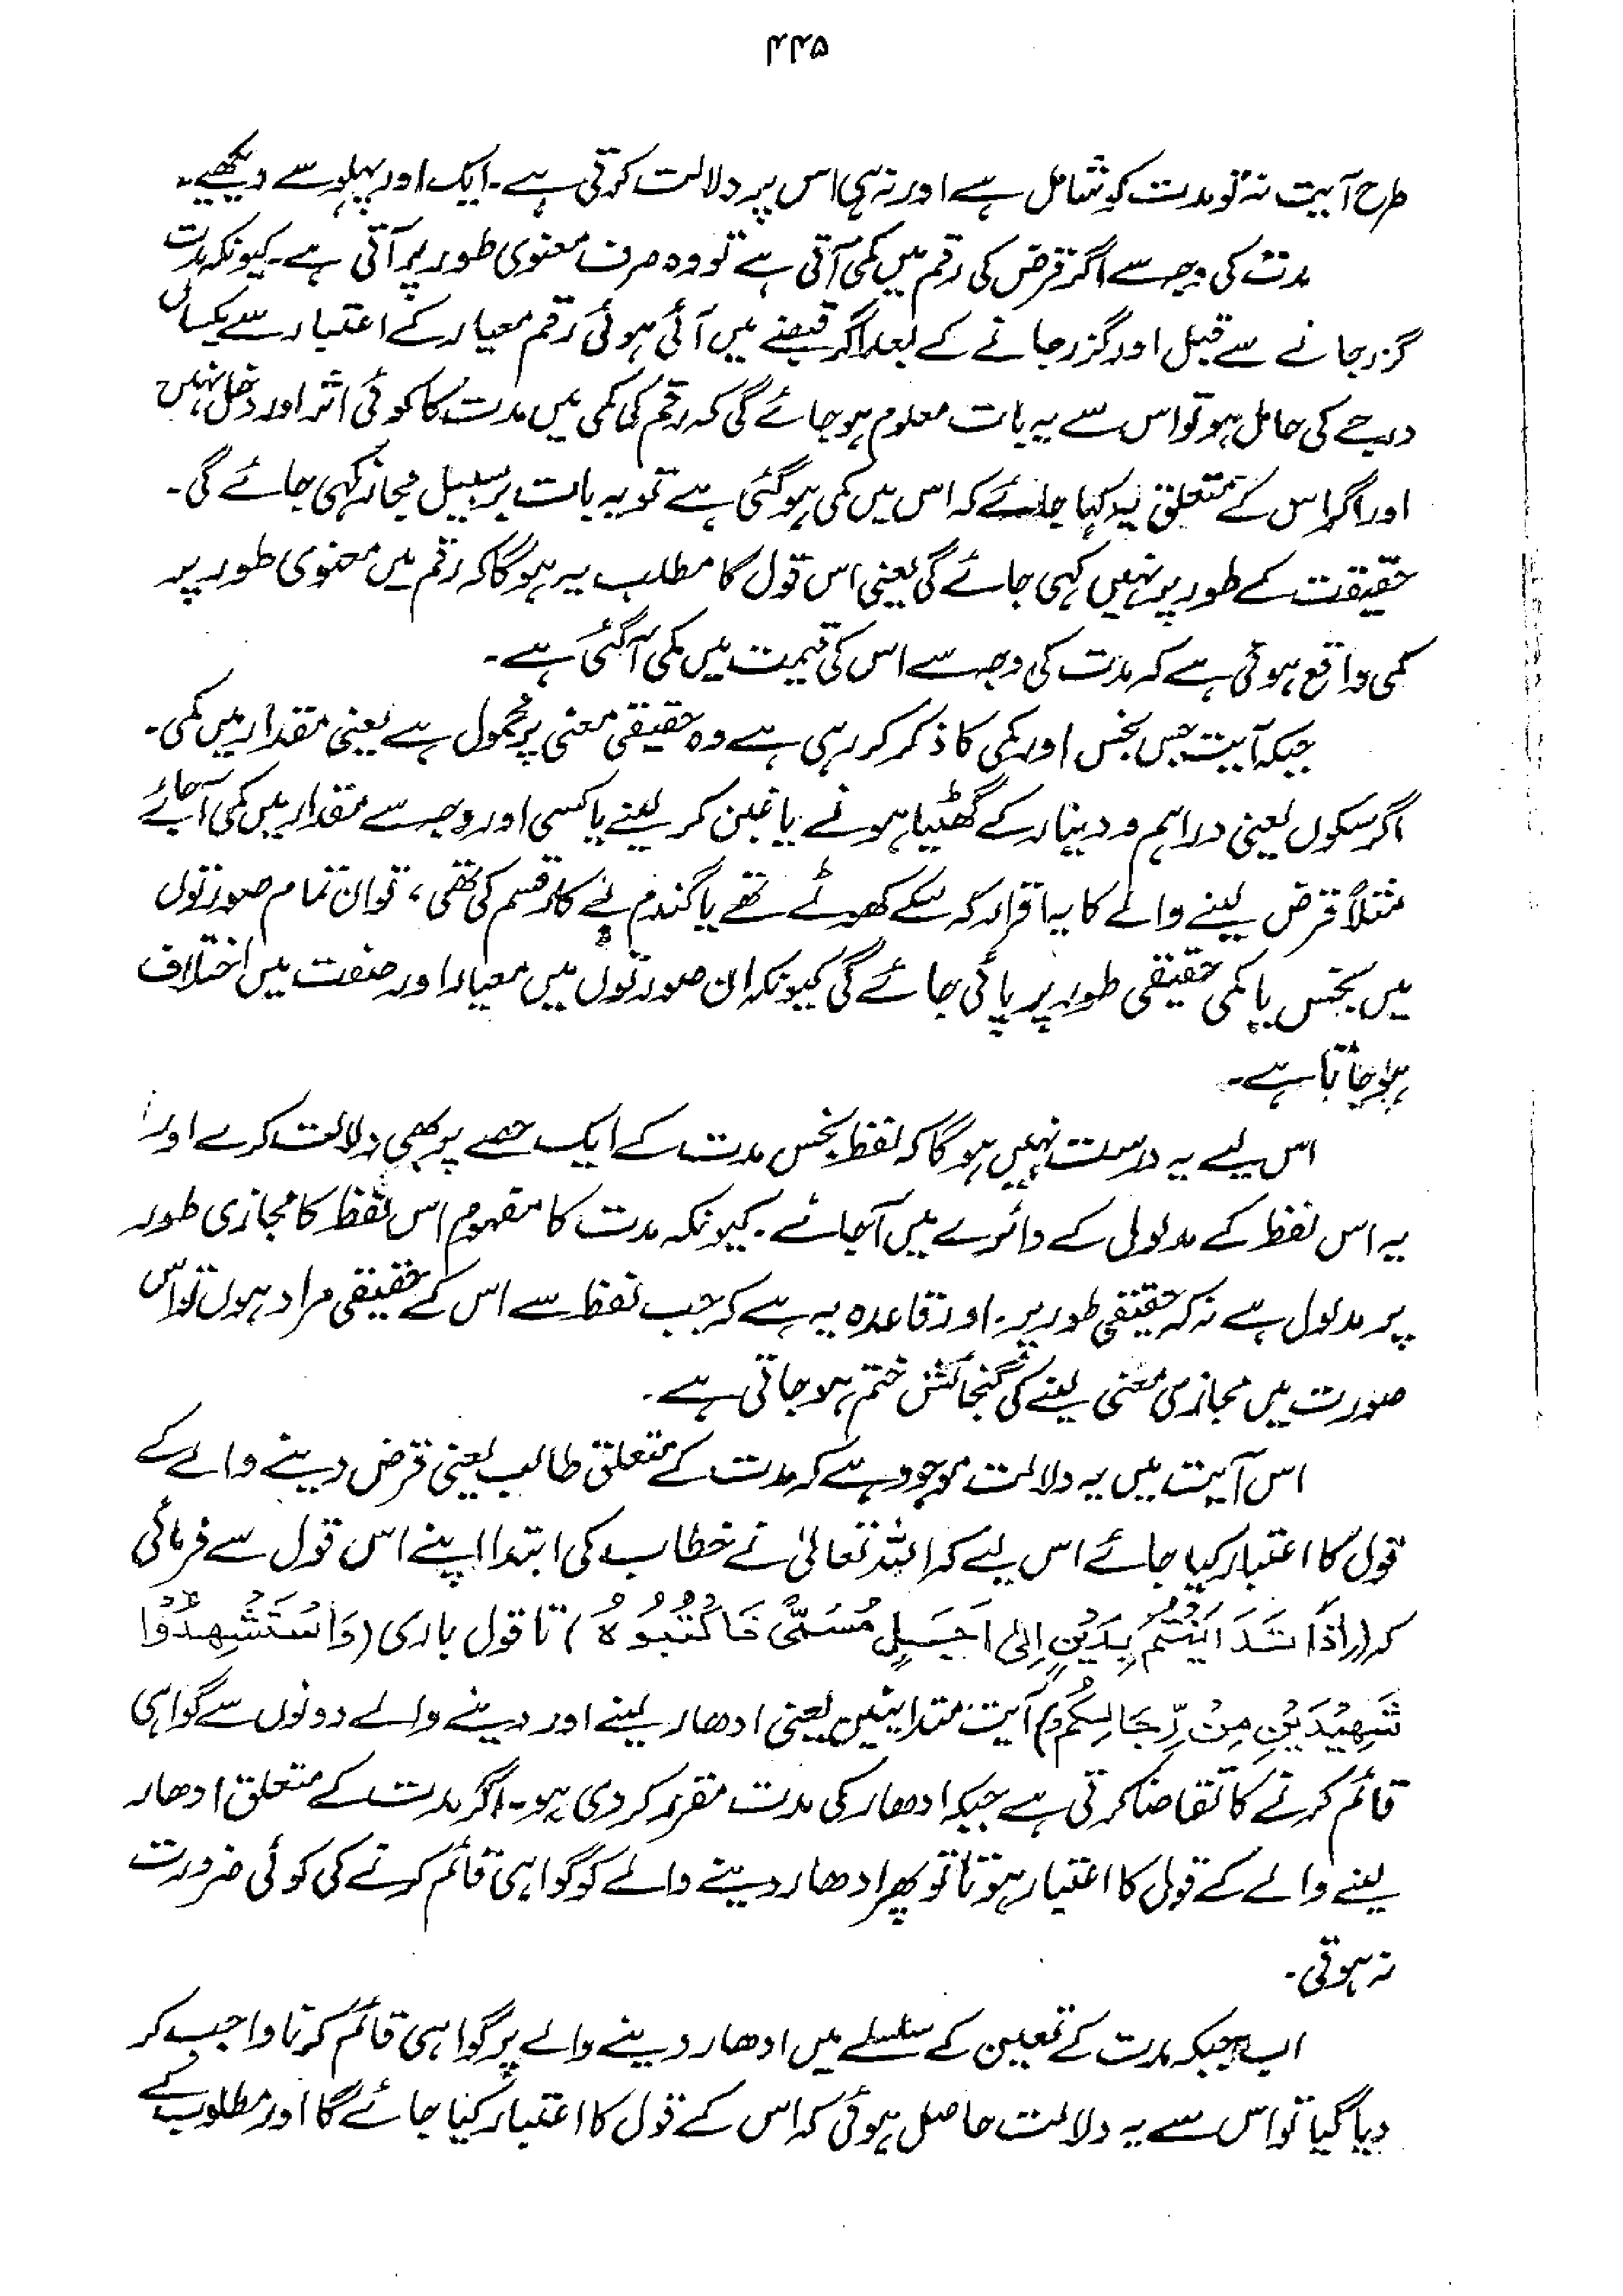 ۴۴۵
طرح آیت نہ تو مدت کو شامل ہے اور نہ ہی اس پر دلالت کرتی ہے۔ ایک اور پہلو سے دیکھیے۔
مدت کی وجہ سے اگر قرض کی رقم میں کمی آتی ہے تو وہ صرف معنوی طور پر آتی ہے۔ کیونکہ مدت
گزر جانے سے قبل اور گزر جانے کے بعد اگر قبضے میں آئی ہوئی رقم معیار کے اعتبار سے یکساں
درجے کی حامل ہو تو اس سے یہ بات معلوم ہو جائے گی کہ رقم کی کمی میں مدت کا کوئی اثر اور دخل نہیں
اور اگر اس کے متعلق یہ کہا جائے کہ اس میں کمی ہو گئی ہے تو یہ بات برسبیل مجاز کہی جائے گی۔
حقیقت کے طور پر نہیں کہی جائے گی یعنی اس قول کا مطلب یہ ہوگا کہ رقم میں معنوی طور پر
کمی واقع ہوئی ہے کہ مدت کی وجہ سے اس کی قیمت میں کمی آ گئی ہے۔
جبکہ آیت جس بخس اور کمی کا ذکر کر رہی ہے وہ حقیقی معنی پر محمول ہے یعنی مقدار میں کمی۔
اگر سکوں یعنی دراہم و دینار کے گھٹیا ہونے یا غبن کر لینے یا کسی اور وجہ سے مقدار میں کمی آ جائے
مثلاً قرض لینے والے کا یہ اقرار کہ سکے کھوٹے تھے یا گندم بے کار قسم کی تھی، تو ان تمام صورتوں
میں بخس یا کمی حقیقی طور پر پائی جائے گی کیونکہ ان صورتوں میں معیار اور صفت میں اختلاف
ہو جاتا ہے۔
اس لیے یہ درست نہیں ہوگا کہ لفظ بخس مدت کے ایک حصے پر بھی دلالت کرے اور
یہ اس لفظ کے مدلول کے دائرے میں آ جائے۔ کیونکہ مدت کا مفہوم اس لفظ کا مجازی طور
پر مدلول ہے نہ کہ حقیقی طور پر۔ اور قاعدہ یہ ہے کہ جب لفظ سے اس کے حقیقی مراد ہوں تو اس
صورت میں مجازی معنی لینے کی گنجائش ختم ہو جاتی ہے۔
اس آیت میں یہ دلالت موجود ہے کہ مدت کے متعلق طالب یعنی قرض دینے والے کے
قول کا اعتبار کیا جائے اس لیے کہ اللہ تعالیٰ نے خطاب کی ابتدا اپنے اس قول سے فرمائی
کہ (اِذَا تَدَایَنْتُمْ بِدَیْنٍ اِلٰی اَجَلٍ مُّسَمًّی فَاکْتُبُوْہُ) تا قول باری (وَاسْتَشْھِدُوْا
شَھِیْدَیْنِ مِنْ رِّجَالِکُمْ) آیت متداینین یعنی ادھار لینے اور دینے والے دونوں سے گواہی
قائم کرنے کا تقاضا کرتی ہے جبکہ ادھار کی مدت مقرر کر دی ہو۔ اگر مدت کے متعلق ادھار
لینے والے کے قول کا اعتبار ہوتا تو پھر ادھار دینے والے کو گواہی قائم کرنے کی کوئی ضرورت
نہ ہوتی۔
اب جبکہ مدت کے تعین کے سلسلے میں ادھار دینے والے پر گواہی قائم کرنا واجب کر
دیا گیا تو اس سے یہ دلالت حاصل ہوئی کہ اس کے قول کا اعتبار کیا جائے گا اور مطلوب کے